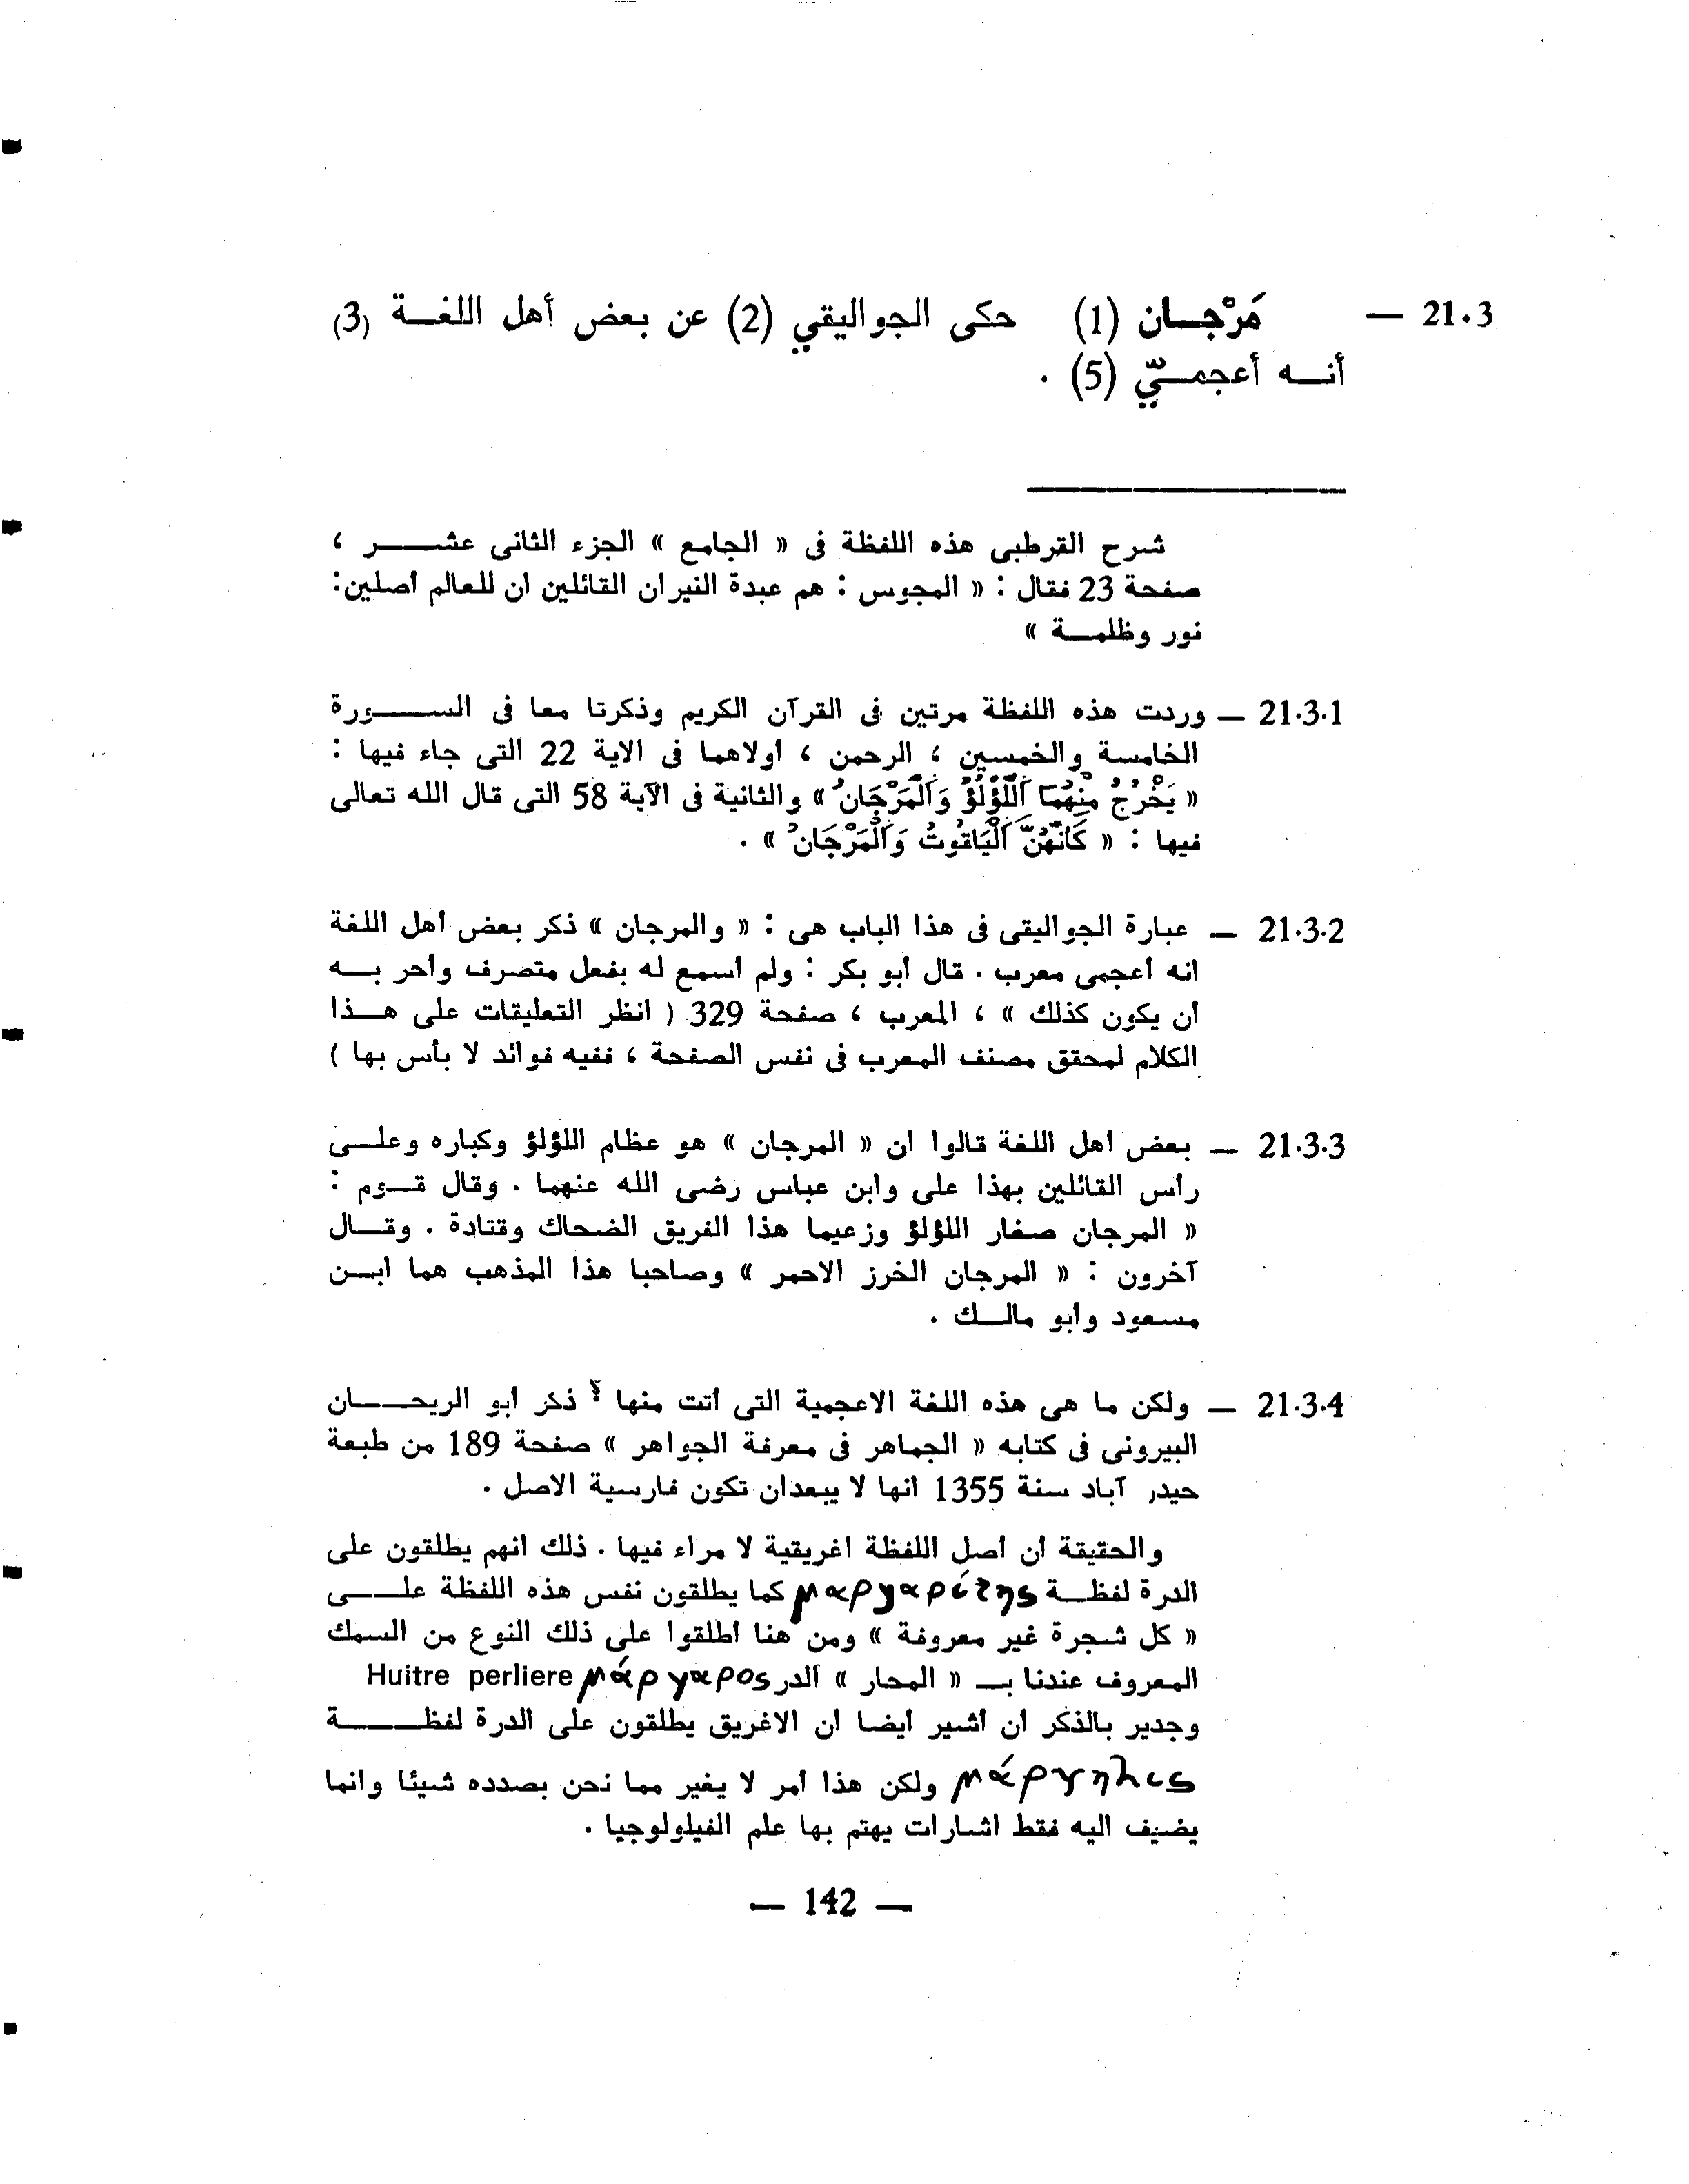 21.3 — مَرْجــان (1) حكى الجواليقي (2) عن بعض أهل اللغــة (3)
أنــه أعجمــيّ (5) .
شرح القرطبى هذه اللفظة فى « الجامع » الجزء الثانى عشــر ،
صفحة 23 فقال : « المجوس : هم عبدة النيران القائلين ان للعالم أصلين:
نور وظلمــة »
21.3.1 — وردت هذه اللفظة مرتين فى القرآن الكريم وذكرتا معا فى الســورة
الخامسة والخمسين ، الرحمن ، أولاهما فى الاية 22 التى جاء فيها :
« يَخْرُجُ مِنْهُمَا اَللُّؤْلُؤُ وَاَلْمَرْجَانُ » والثانية فى الآية 58 التى قال الله تعالى
فيها : « كَأَنَّهُنَّ اَلْيَاقُوتُ وَاَلْمَرْجَانُ » .
21.3.2 — عبارة الجواليقى فى هذا الباب هى : « والمرجان » ذكر بعض أهل اللغة
انه أعجمى معرب . قال أبو بكر : ولم أسمع له بفعل متصرف وأحر بــه
أن يكون كذلك » ، المعرب ، صفحة 329 ( انظر التعليقات على هــذا
الكلام لمحقق مصنف المعرب فى نفس الصفحة ، ففيه فوائد لا بأس بها )
21.3.3 — بعض أهل اللغة قالوا ان « المرجان » هو عظام اللؤلؤ وكباره وعلــى
رأس القائلين بهذا على وابن عباس رضى الله عنهما . وقال قــوم :
« المرجان صغار اللؤلؤ وزعيما هذا الفريق الضحاك وقتادة . وقــال
آخرون : « المرجان الخرز الاحمر » وصاحبا هذا المذهب هما ابــن
مسعود وأبو مالــك .
21.3.4 — ولكن ما هى هذه اللغة الاعجمية التى أتت منها ؟ ذكر أبو الريحــان
البيرونى فى كتابه « الجماهر فى معرفة الجواهر » صفحة 189 من طبعة
حيدر آباد سنة 1355 انها لا يبعدان تكون فارسية الاصل .
والحقيقة أن أصل اللفظة اغريقية لا مراء فيها . ذلك انهم يطلقون على
الدرة لفظــة μαργαρίτης كما يطلقون نفس هذه اللفظة علــى
« كل شجرة غير معروفة » ومن هنا أطلقوا على ذلك النوع من السمك
المعروف عندنا بــ « المحار » الدر μάργαρος Huitre perliere
وجدير بالذكر أن أشير أيضا أن الاغريق يطلقون على الدرة لفظــة
μάργηλις ولكن هذا أمر لا يغير مما نحن بصدده شيئا وانما
يضيف اليه فقط اشارات يهتم بها علم الفيلولوجيا .
— 142 —